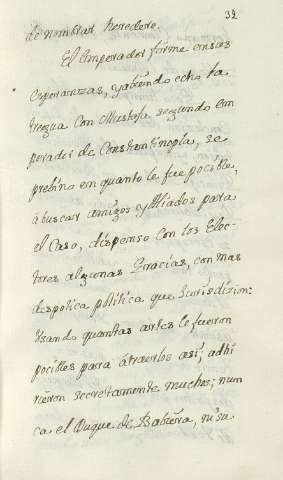 32
de nombrar heredero.
El Emperador firme en sus
esperanzas, y abiendo echo la
tregua con Mustafa segundo Em
perador de Constantinopla, se
prebino en quanto le fue pocible,
á buscar amigos y Aliados para
el Caso, dispenso con los Elec-
tores algunas Gracias, con mas
despotica politica que Jurisdizion:
Usando quantas artes le fueron
pocibles para atraerlos asi, adhi
rieron secretamente muchos; nun
ca el Duque de Babiera, ni su